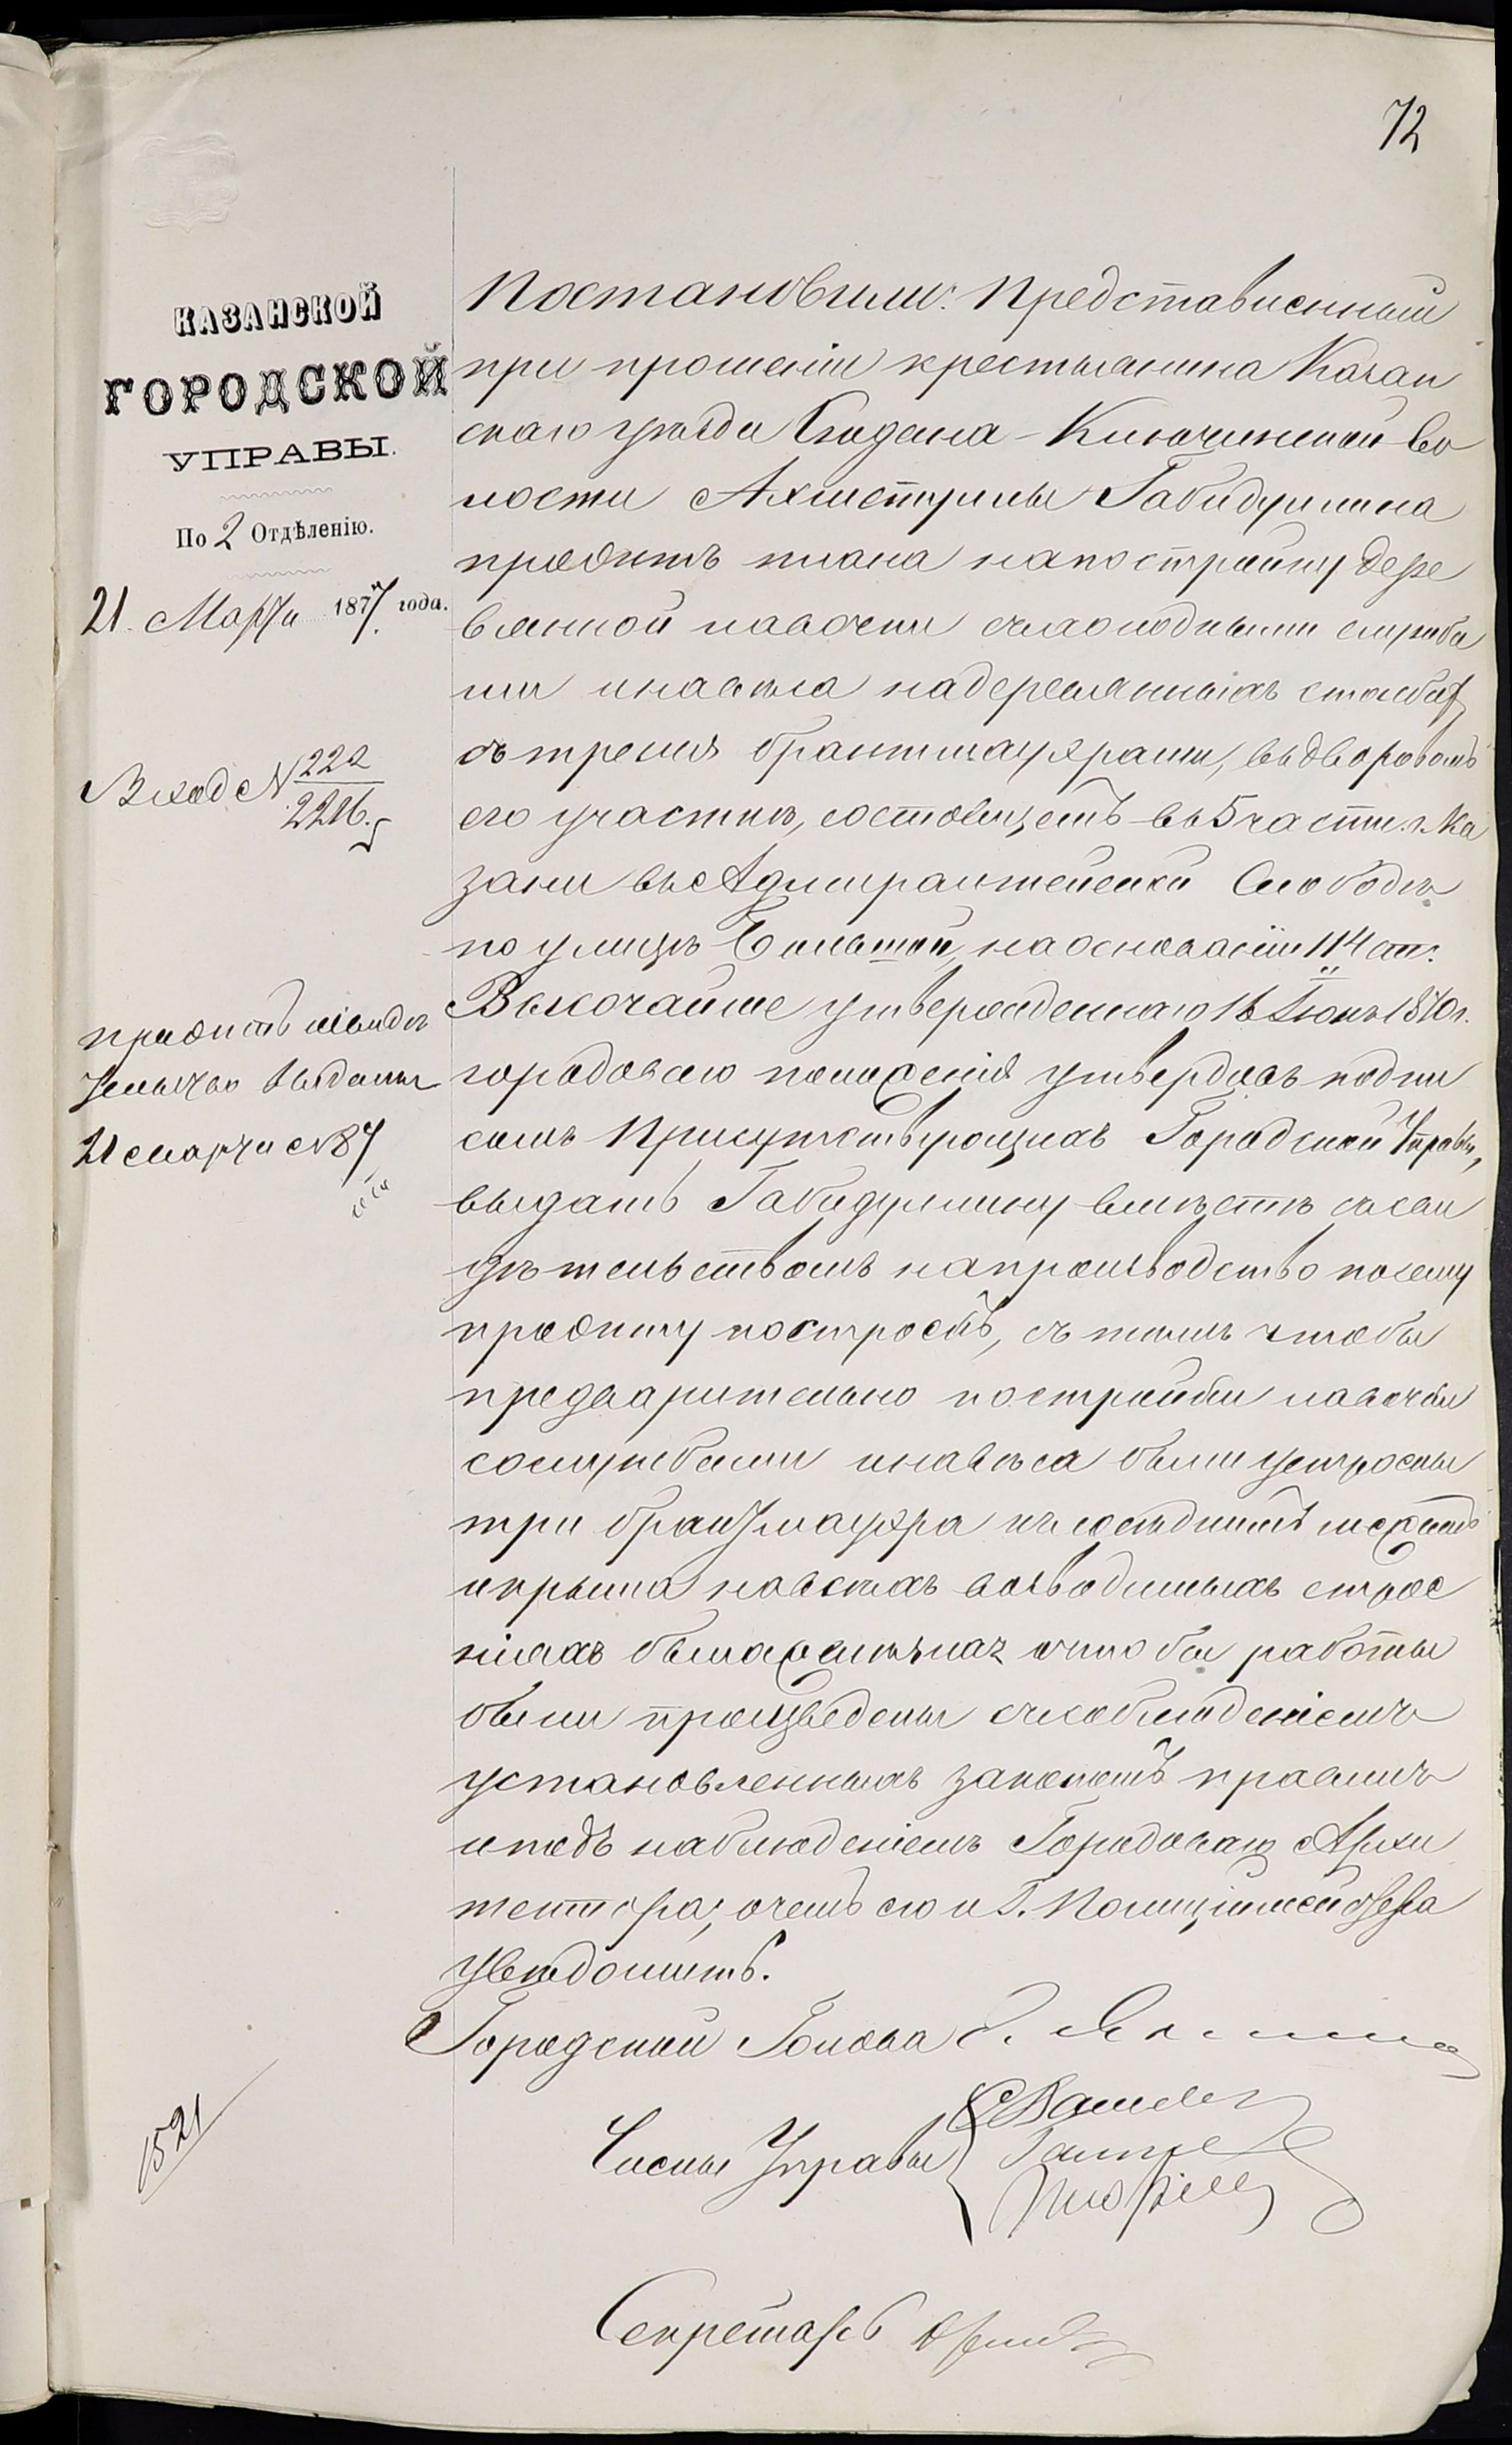 72
КАЗАНСКОЙ
ГОРОДСКОЙ
УПРАВЫ.
По 2 Отдѣленію.
21 Марта 1877 года.
Вход № 222
2216.
проэктъ
выданы
21 марта № 87
Постановили: Представленный
при прошеніи крестьянина Казан
скаго уѣзда Ключинской во
лости Ахметзулы Габидулина
проэктъ плана на постройку дере
вянной лавочки съ холодными служба
ми и навѣса на деревянныхъ столбахъ
съ тремя брантмауерами, въ дворовомъ
его участкѣ, состоящемъ въ 5 части г. Ка
зани въ Адмиралтейской Слободѣ
по улицѣ Большой, на основаніи 114 ст.
Высочайше утвержденнаго 16 Іюня 1870 г.
городоваго положенія утвердивъ подпи
сомъ Присутствующихъ Городской Управы,
выдать Габидулину вмѣстѣ съ сви
дѣтельствомъ на производство по сему
проэкту построекъ, съ тѣмъ чтобы
предварительно постройки лавочки
со службами и навѣса были устроены
три брантмауера къ сосѣднимъ мѣстамъ
и крыша на всѣхъ возводимыхъ строе
ніяхъ была желѣзная и чтобы работы
были произведены съ соблюденіемъ
установленныхъ закономъ правилъ
и подъ наблюденіемъ Городоваго Архи
тектора; о чемъ его и Г. Полиціймейстера
увѣдомить.
Городской Голова
Члены Управы
Секретарь
1521